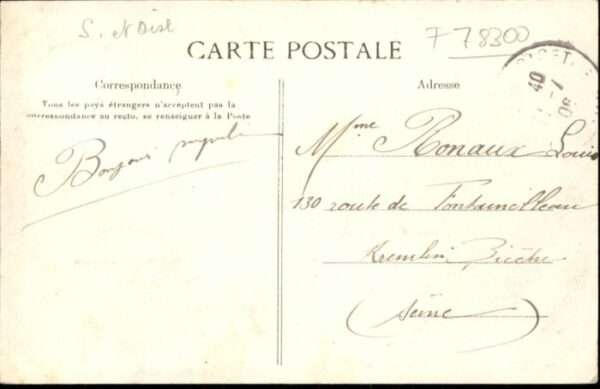 S. et Oise
F 78300
CARTE POSTALE
Correspondance
Tous les pays étrangers n'acceptent pas la
correspondance au recto, se renseigner à la Poste
Bonjour
Adresse
40
-1
08
Mme Ronaux Louis
130 route de Fontainebleau
Kremlin Bicêtre
(Seine)